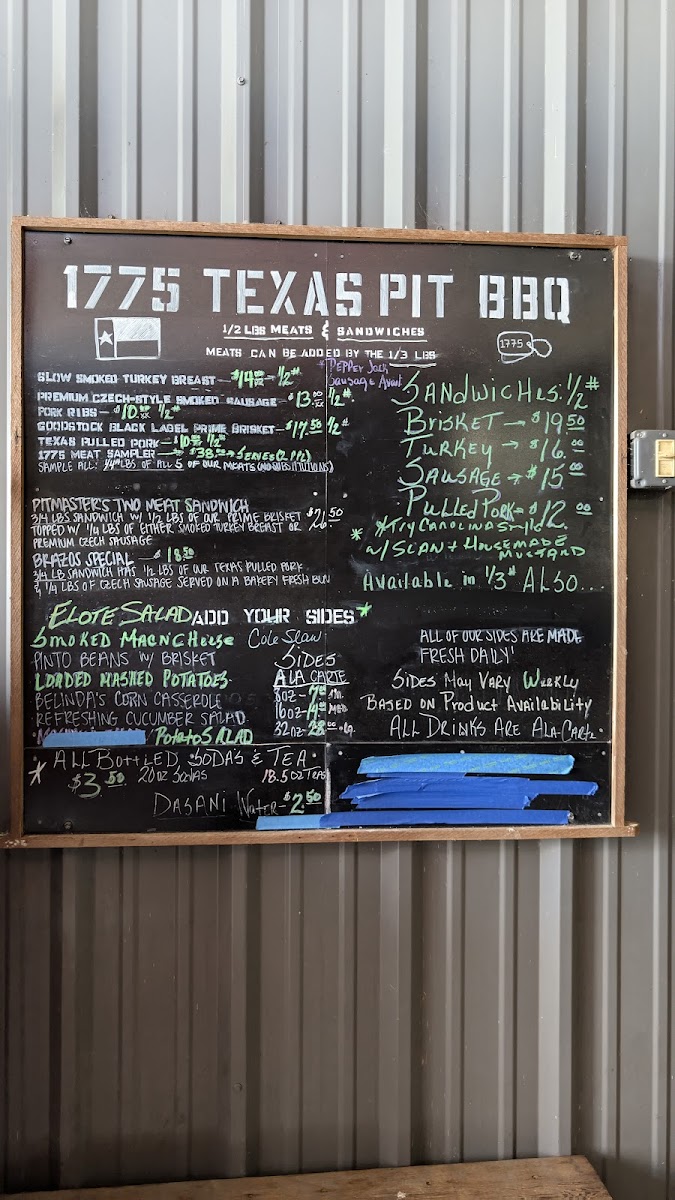 1775 TEXAS PIT BBQ
1/2 LBS MEATS & SANDWICHES
MEATS CAN BE ADDED BY THE 1/3 LBS
1775
SLOW SMOKED TURKEY BREAST — $14 1/2 #
PREMIUM CZECH-STYLE SMOKED SAUSAGE — $13.00 1/2 #
* Pepper Jack
Sausage Avail
PORK RIBS — $10 1/2 #
GOODSTOCK BLACK LABEL PRIME BRISKET — $17.50 1/2 #
TEXAS PULLED PORK — $10 1/2 #
1775 MEAT SAMPLER — $38 → SERVES (2 PPL)
SAMPLE ALL: 1/4 LBS OF ALL 5 OF OUR MEATS (NO SUBSTITUTIONS)
PITMASTER'S TWO MEAT SANDWICH
3/4 LBS SANDWICH W/ 1/2 LBS OF OUR PRIME BRISKET
TOPPED W/ 1/4 LBS OF EITHER SMOKED TURKEY BREAST OR
PREMIUM CZECH SAUSAGE
$26.50
BRAZOS SPECIAL — $18.50
3/4 LB SANDWICH HAS 1/2 LBS OF OUR TEXAS PULLED PORK
& 1/4 LBS OF CZECH SAUSAGE SERVED ON A BAKERY FRESH BUN
SANDWICHES 1/2 #
BRISKET → $19.50
TURKEY → $16.00
SAUSAGE → $15.00
PULLED PORK → $12.00
* *TRY CAROLINA STYLE
W/ SLAW + HOUSEMADE
MUSTARD
Available in 1/3 # ALSO...
ELOTE SALAD ADD YOUR SIDES *
SMOKED MAC N CHEESE Cole Slaw
PINTO BEANS W/ BRISKET
LOADED MASHED POTATOES
BELINDA'S CORN CASSEROLE
REFRESHING CUCUMBER SALAD
POTATO SALAD
SIDES
A LA CARTE
8oz - 7.00 SM.
16oz - 14.00 MED
32oz - 28.00 LG.
ALL OF OUR SIDES ARE MADE
FRESH DAILY!
SIDES MAY VARY WEEKLY
BASED ON PRODUCT AVAILABILITY
ALL DRINKS ARE ALA-CARTE
* ALL BOTTLED SODA'S & TEA
$3.50 20oz SODAS 18.5 OZ TEAS
DASANI WATER - $2.50